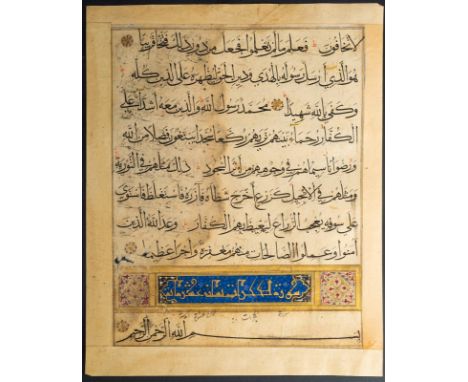 لا تخافون فعلم ما لم تعلموا فجعل من دون ذلك فتحا قريبا
هو الذي ارسل رسوله بالهدى ودين الحق ليظهره على الدين كله
وكفى بالله شهيدا محمد رسول الله والذين معه اشداء على
الكفار رحماء بينهم تريهم ركعا سجدا يبتغون فضلا من الله
ورضوانا سيماهم في وجوههم من اثر السجود ذلك مثلهم في التورية
ومثلهم في الانجيل كزرع اخرج شطاه فازره فاستغلظ فاستوى
على سوقه يعجب الزراع ليغيظ بهم الكفار وعد الله الذين
امنوا وعملوا الصالحات منهم مغفرة واجرا عظيما
سورة الحجرات
بسم الله الرحمن الرحيم